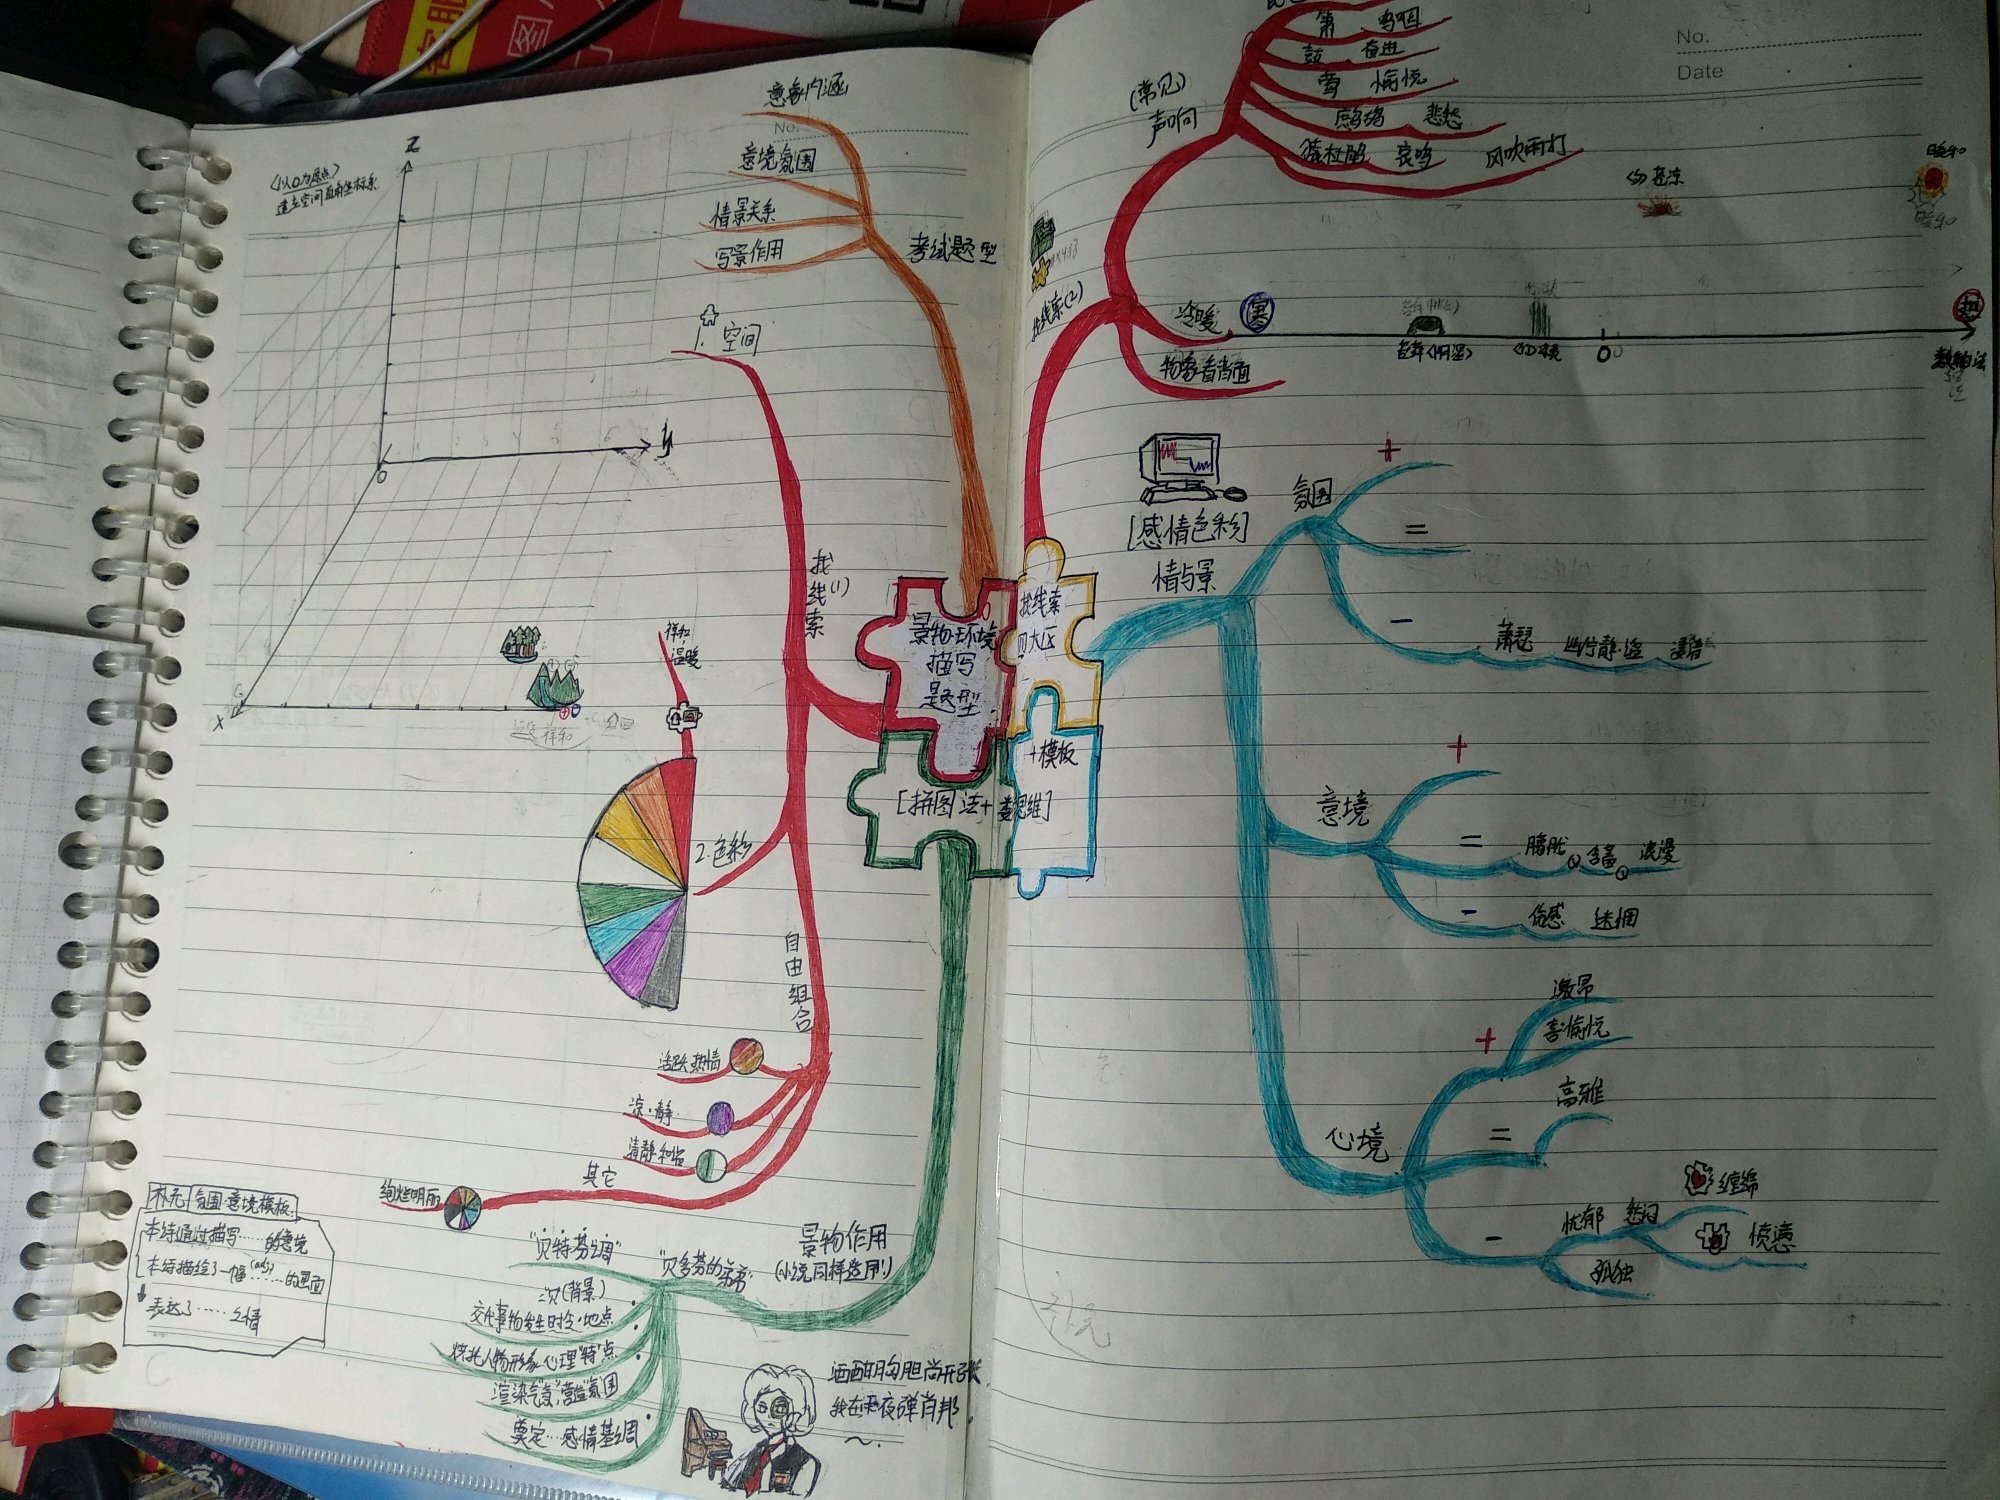 意象内涵
意境氛围
情景关系
写景作用
考试题型
(以O为原点)
建立空间直角坐标系
Z
y
O
X
1.空间
找线索(1)
祥和
温暖
2.色彩
自由组合
活跃热情
凉·静
清静和谐
其它
绚烂明丽
景物环境
描写
题型
[拼图法+
找线索
四大区
+模板
补充 氛围·意境模板
本诗通过描写……的意境
本诗描绘了一幅(adj)……的画面
表达了……之情
景物作用
(小说同样适用)
"贝多芬的弟弟"
"贝特芬调"
二贝(背景)
交代事物发生时控·地点
烘托人物形象·心理"特"点
渲染气氛,"营造"氛围
奠定…感情基调
酒酣胸胆尚开张
我在黑夜弹肖邦
~.
No.
Date
No.
(常见)
声响
鼓 奋进
莺 愉悦
悲愁
哀鸣
风吹雨打
悲凉
暖和
暖和
找线索(2)
冷暖
寒
热
O
数轴法
物象看背面
[感情色彩]
情与景
氛围
+
=
-
萧瑟
意境
+
=
朦胧
含蓄
浪漫
-
伤感
迷惘
心境
+
激昂
喜愉悦
=
高雅
-
忧郁
愁闷
缠绵
愤懑
孤独
补充